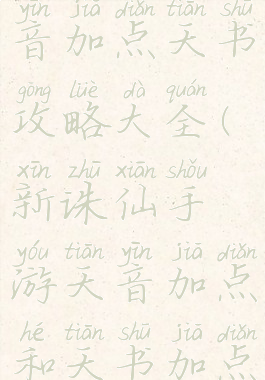 yīn jiā diǎn tiān shū
音加点天书
gōng lüè dà quán
攻略大全(
xīn zhū xiān shǒu
新诛仙手
yóu tiān yīn jiā diǎn
游天音加点
hé tiān shū jiā diǎn
和天书加点